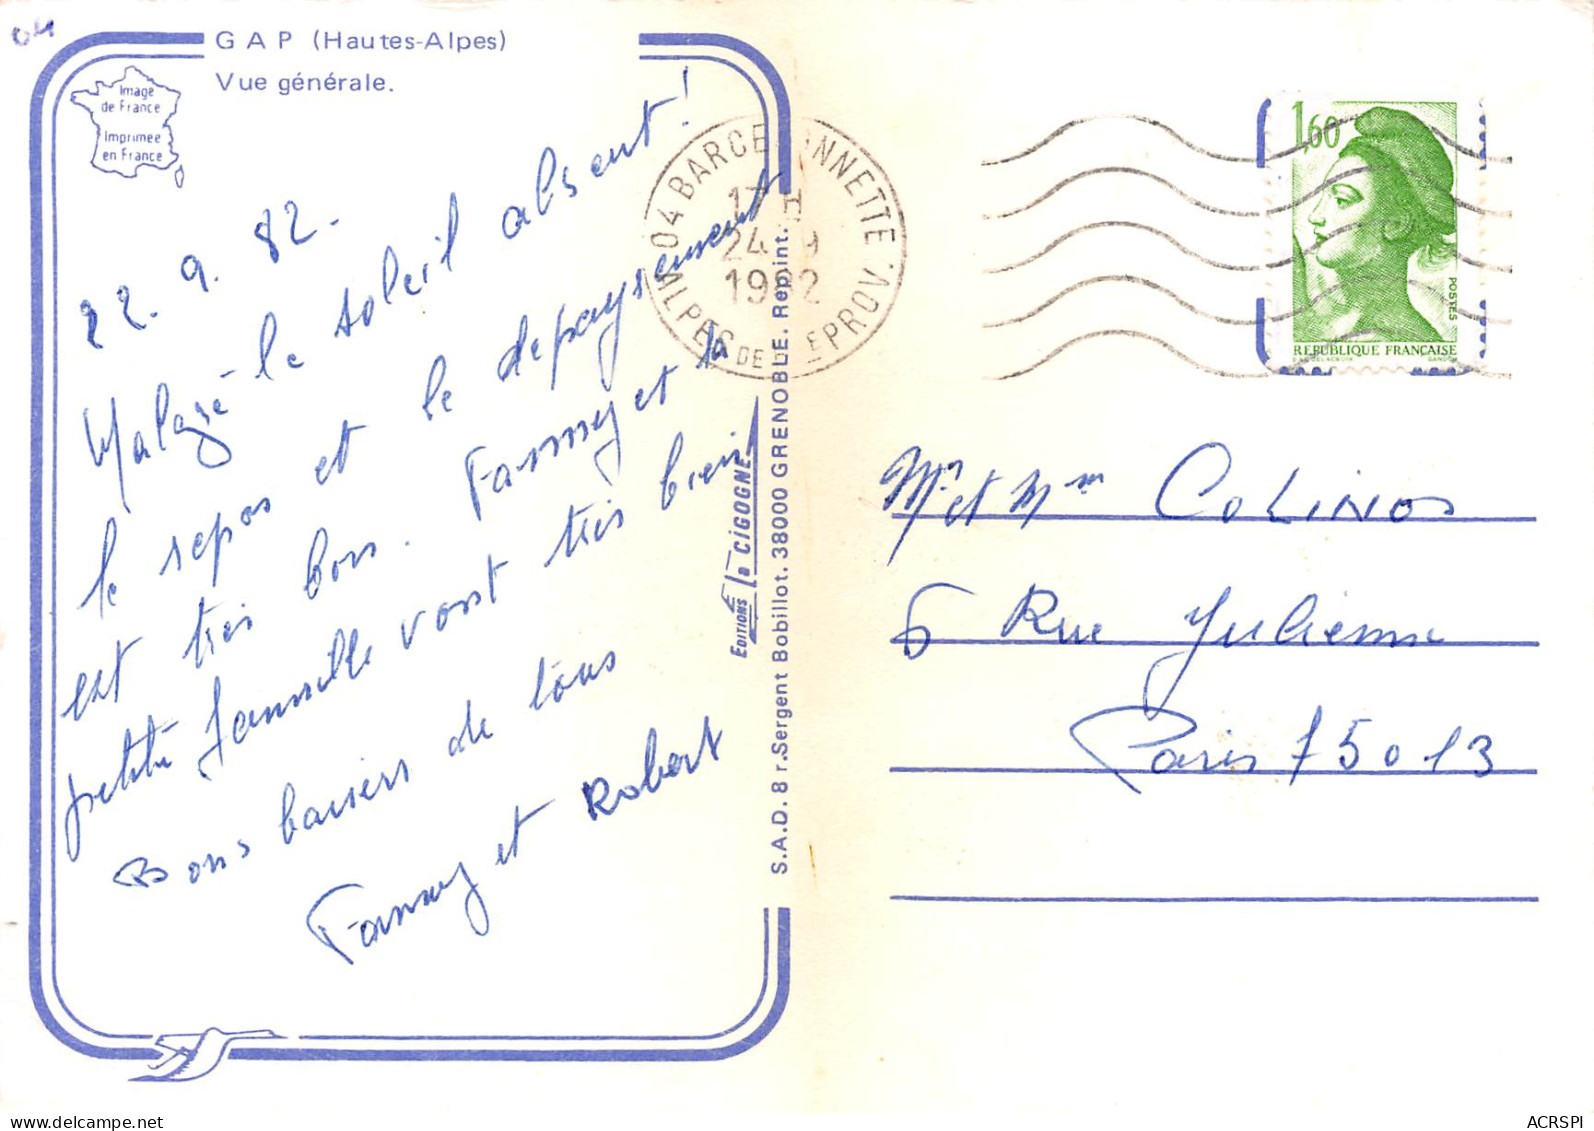 04
GAP (Hautes-Alpes)
Vue générale.
Image
de France
Imprimée
en France
22.9.82.
Malgré le soleil absent!
le repos et le depaysement
est très bon. Fanny et sa
petite famille vont très bien
Bons baisers de tous
Fanny et Robert
EDITIONS la CIGOGNE
S.A.D. 8 r. Sergent Bobillot. 38000 GRENOBLE. Repint.
04 BARCELONNETTE
17 H
24-9
1982
ALPES DE HTE PROV.
1,60
POSTES
REPUBLIQUE FRANÇAISE
Mr et Mme COLINOS
6 Rue Julienne
Paris 75013
ACRSPI